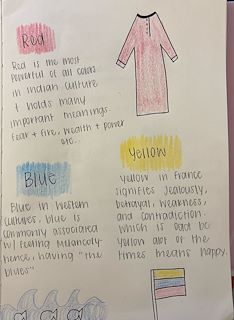 Red
Red is the most
powerful of all colors
in Indian culture
+ holds many
important meanings.
fear + fire, wealth + power
etc...
Yellow
Yellow in France
signifies jealousy,
betrayal, weakness,
and contradiction.
which is odd bc
yellow alot of the
times means happy.
Blue
Blue in western
cultures, blue is
commonly associated
w/ feeling melancholy-
hence, having "the
blues"